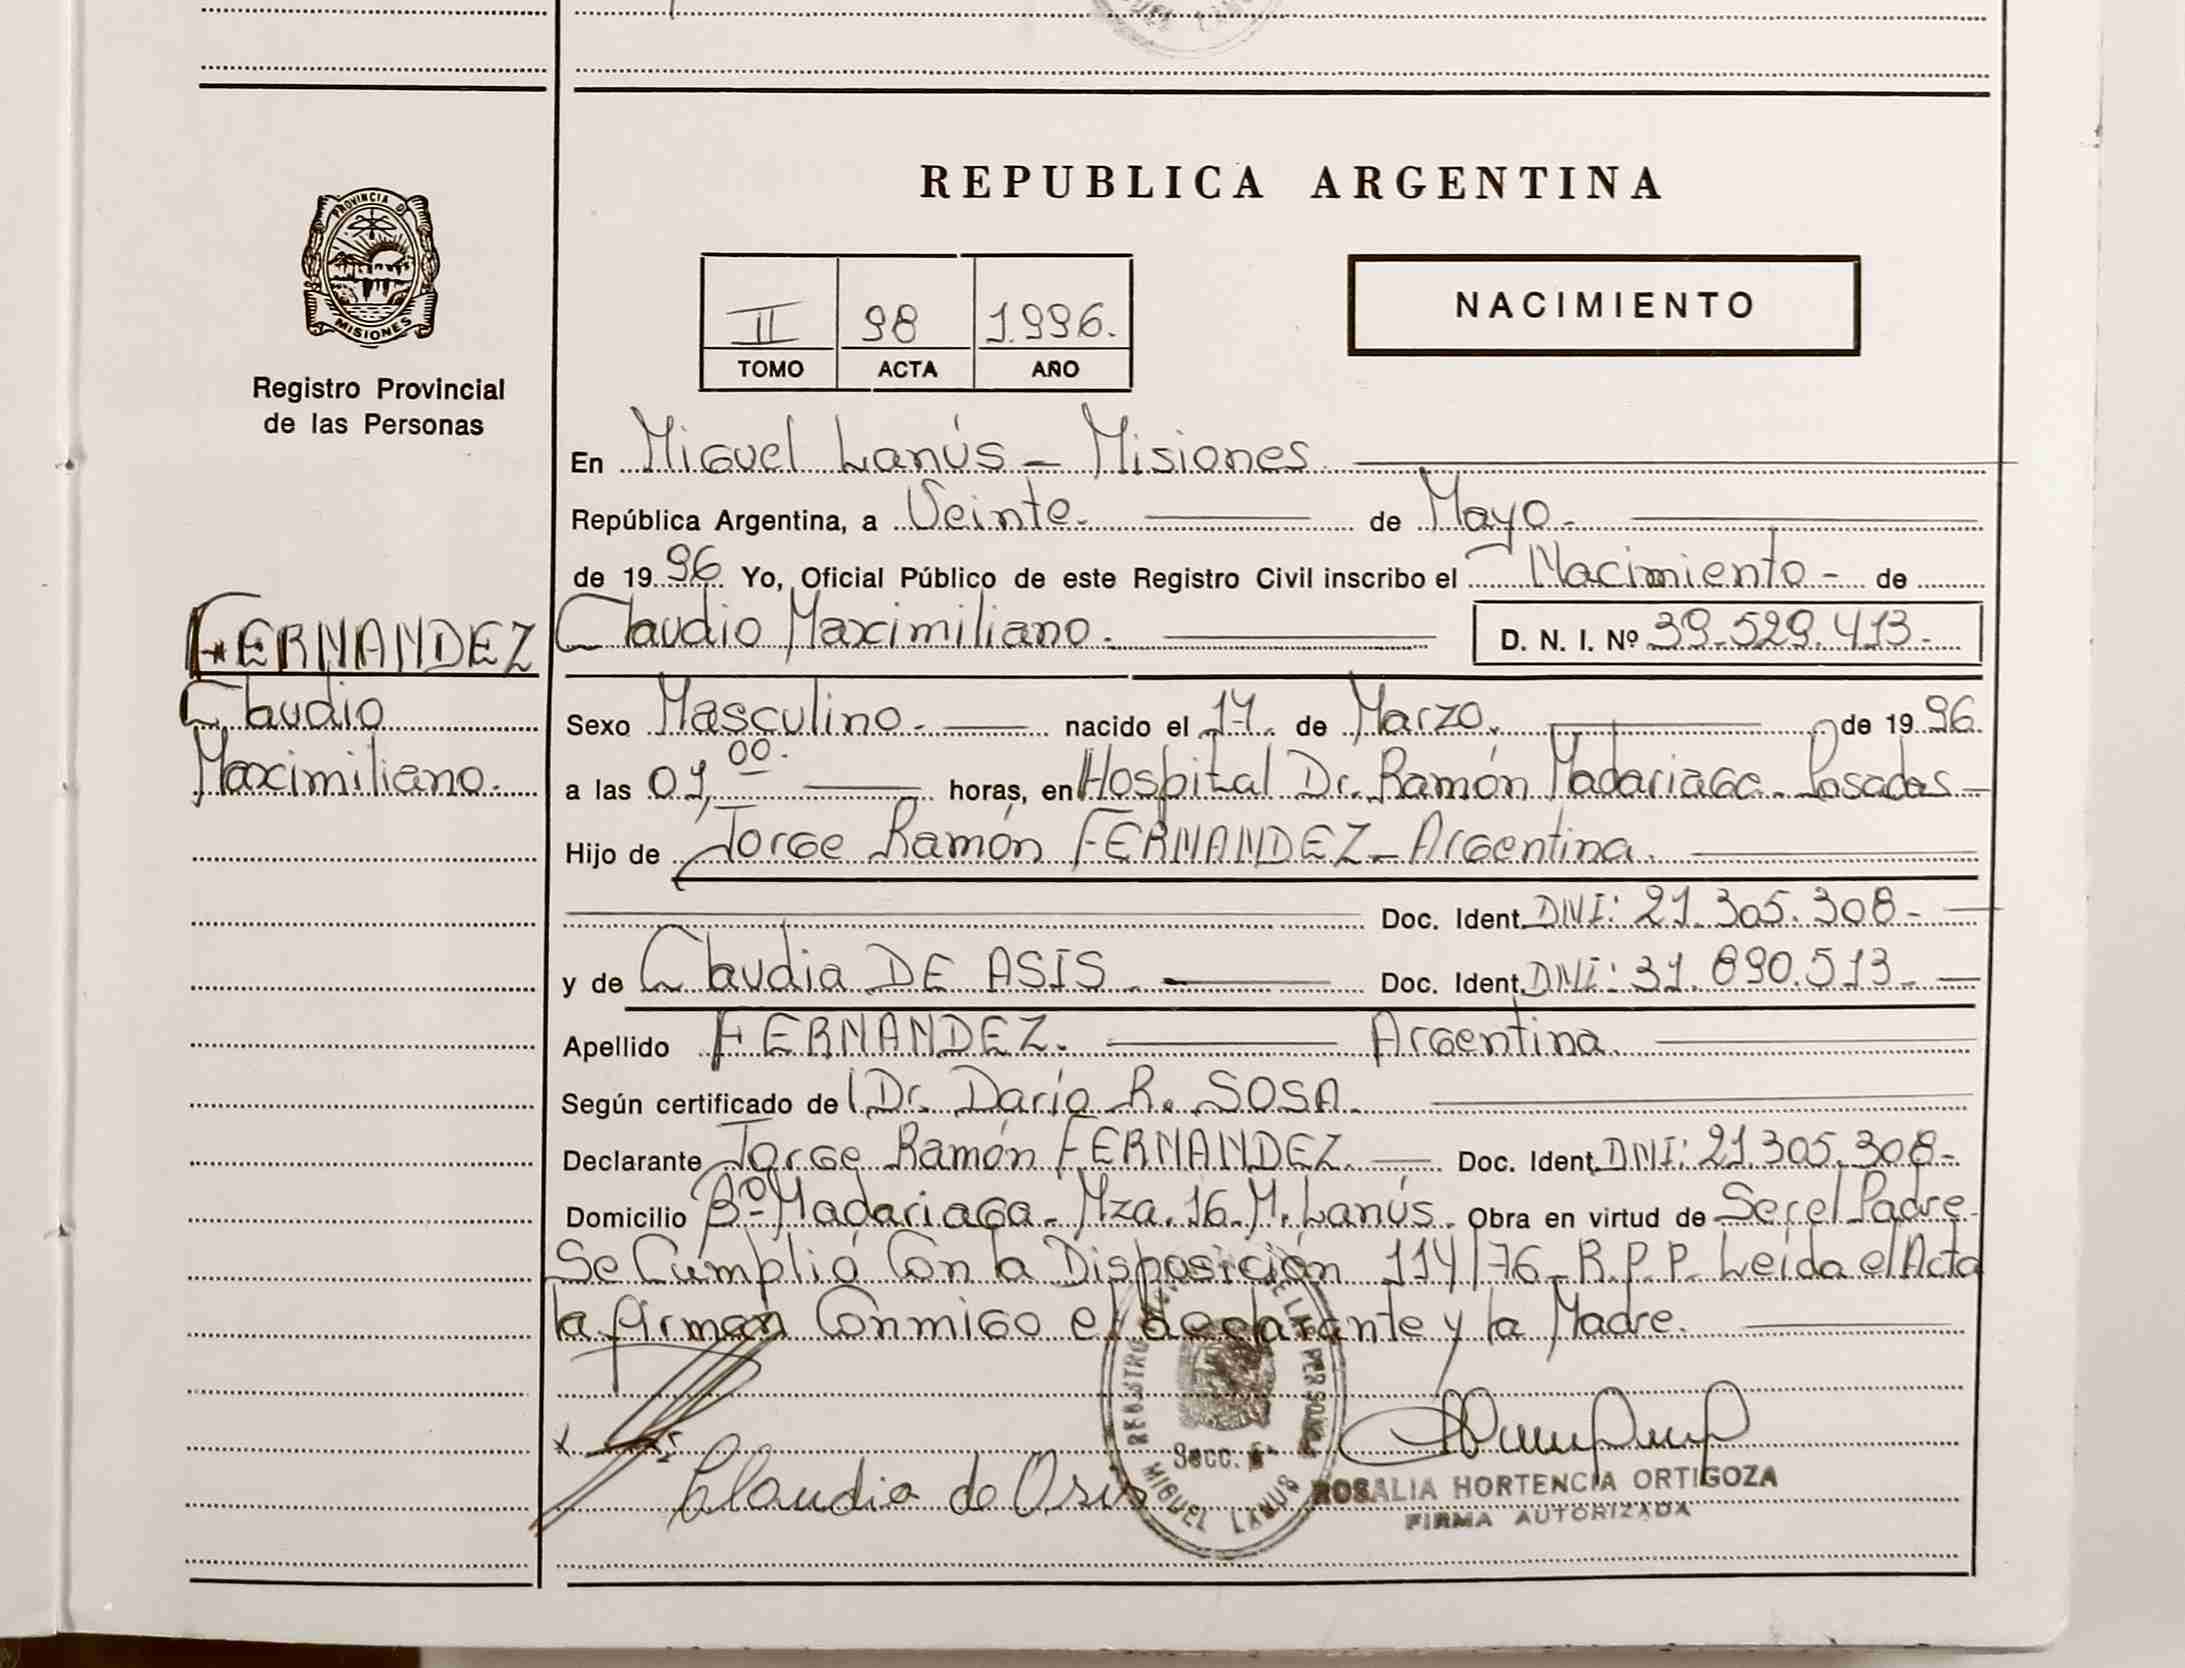 PROVINCIA D
MISIONES
Registro Provincial
de las Personas
FERNANDEZ
Claudio
Maximiliano.
REPUBLICA ARGENTINA
II 98 1.996.
TOMO ACTA AÑO
NACIMIENTO
En Miguel Lanús - Misiones
República Argentina, a Veinte. de Mayo.
de 19 96 Yo, Oficial Público de este Registro Civil inscribo el Nacimiento - de
Claudio Maximiliano. D. N. I. Nº 39.529.413.-
Sexo Masculino. nacido el 17. de Marzo. de 19 96.
a las 01,00. horas, en Hospital Dr. Ramón Madariaga - Posadas -
Hijo de Jorge Ramón FERNANDEZ - Argentina.
Doc. Ident. DNI: 21.305.308.-
y de Claudia DE ASIS. Doc. Ident. DNI: 31.890.513.-
Apellido FERNANDEZ. Argentina.
Según certificado de Dr. Darío R. SOSA.
Declarante Jorge Ramón FERNANDEZ. Doc. Ident. DNI: 21.305.308.-
Domicilio Bº Madariaga - Mza. 16 - M. Lanús. Obra en virtud de Ser el Padre.
Se Cumplió Con la Disposición 114/76 - R.P.P. Leída el Acta
la firman Conmigo el declarante y la Madre.
REGISTRO DE LAS PERSONAS
Secc.
MIGUEL LANUS
Claudia de Asis
ROSALIA HORTENCIA ORTIGOZA
FIRMA AUTORIZADA